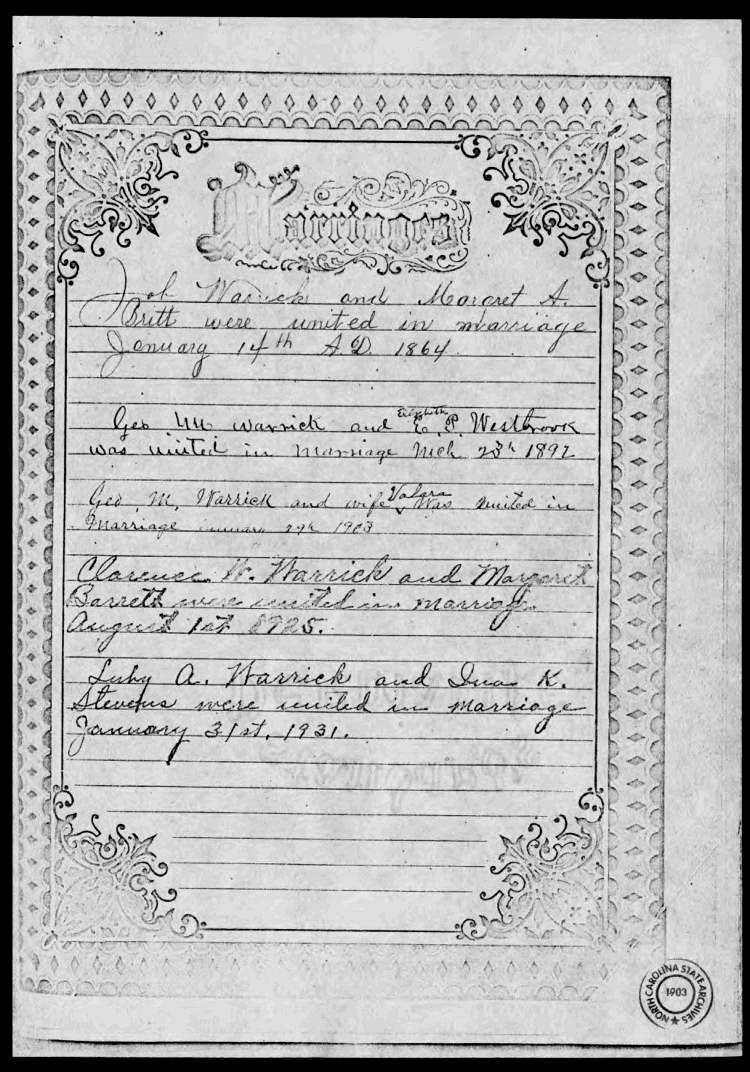 Marriages
Job Warrick and Margret A.
Britt were united in marriage
January 14th A.D. 1864.
Geo M Warrick and Elizabeth E. P. Westbrook
was united in marriage Mch 23h 1892
Geo. M. Warrick and wife Valara was united in
Marriage January 29th 1903
Clarence W. Warrick and Margaret
Barrett were united in marriage
August 1st 1925.
Luby A. Warrick and Ina K.
Stevens were united in marriage
January 31st, 1931.
NORTH CAROLINA STATE ARCHIVES
1903